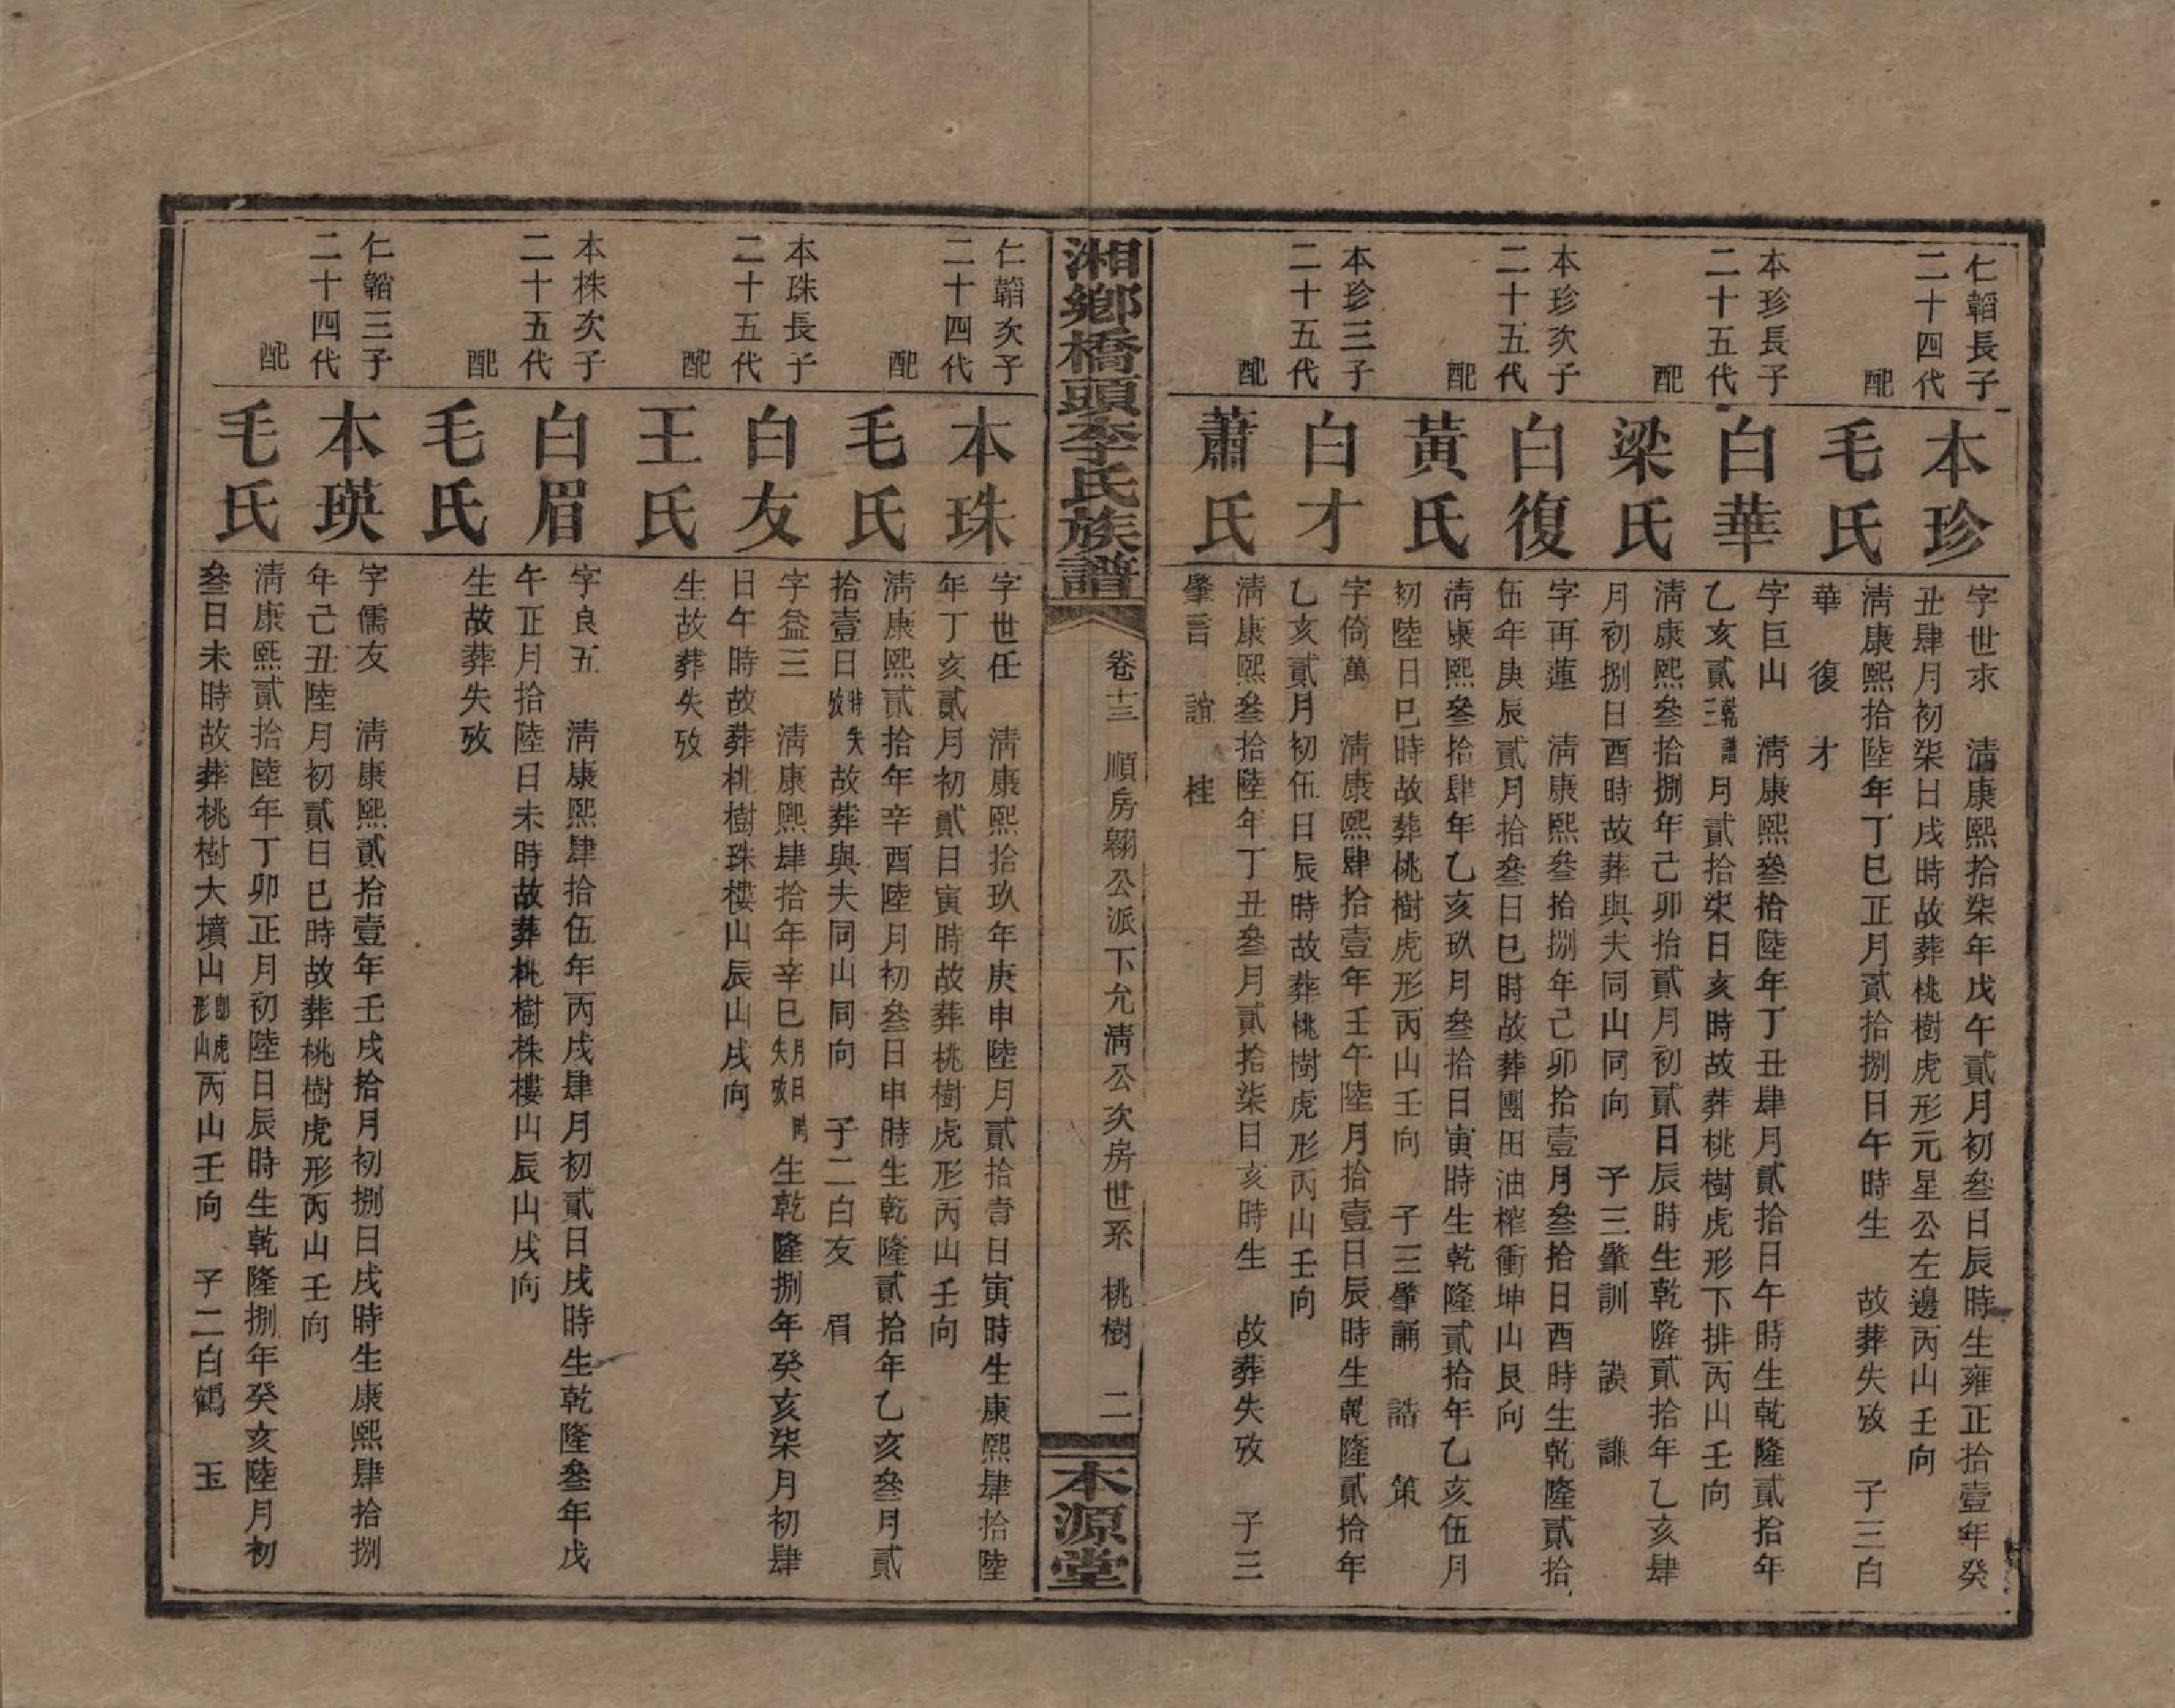 仁韜長子
二十四代
本珍
字世求　清康熙拾柒年戊午貳月初叄日辰時生雍正拾壹年癸
丑肆月初柒日戌時故葬桃樹虎形元星公左邊丙山壬向
配
毛氏
清康熙拾陸年丁巳正月貳拾捌日午時生　故葬失攷　子三白
華　復　才
本珍長子
二十五代
白華
字巨山　清康熙叄拾陸年丁丑肆月貳拾日午時生乾隆貳拾年
乙亥貳月貳拾柒日亥時故葬桃樹虎形下排丙山壬向
配
梁氏
清康熙叄拾捌年己卯拾貳月初貳日辰時生乾隆貳拾年乙亥肆
月初捌日酉時故葬與夫同山同向　子三肇訓　謨　謙
本珍次子
二十五代
白復
字再蓮　清康熙叄拾捌年己卯拾壹月叄拾日酉時生乾隆貳拾
伍年庚辰貳月拾叄日巳時故葬團田油榨衝坤山艮向
配
黃氏
清康熙叄拾肆年乙亥玖月叄拾日寅時生乾隆貳拾年乙亥伍月
初陸日巳時故葬桃樹虎形丙山壬向　子三肇誦　誥　策
本珍三子
二十五代
白才
字倚萬　清康熙肆拾壹年壬午陸月拾壹日辰時生乾隆貳拾年
乙亥貳月初伍日辰時故葬桃樹虎形丙山壬向
配
蕭氏
清康熙叄拾陸年丁丑叄月貳拾柒日亥時生　故葬失攷　子三
肇言　誼　桂
湘鄉橋頭李氏族譜
卷十三　順房翱公派下允清公次房世系　桃樹　二
本源堂
仁韜次子
二十四代
本珠
字世任　清康熙拾玖年庚申陸月貳拾壹日寅時生康熙肆拾陸
年丁亥貳月初貳日寅時故葬桃樹虎形丙山壬向
配
毛氏
清康熙貳拾年辛酉陸月初叄日申時生乾隆貳拾年乙亥叄月貳
拾壹日時失攷故葬與夫同山同向　子二白友　眉
本珠長子
二十五代
白友
字益三　清康熙肆拾年辛巳月日時失攷生乾隆捌年癸亥柒月初肆
日午時故葬桃樹珠樓山辰山戌向
配
王氏
生故葬失攷
本株次子
二十五代
白眉
字良五　清康熙肆拾伍年丙戌肆月初貳日戌時生乾隆叄年戊
午正月拾陸日未時故葬桃樹株樓山辰山戌向
配
毛氏
生故葬失攷
仁韜三子
二十四代
本瑛
字儒友　清康熙貳拾壹年壬戌拾月初捌日戌時生康熙肆拾捌
年己丑陸月初貳日巳時故葬桃樹虎形丙山壬向
配
毛氏
清康熙貳拾陸年丁卯正月初陸日辰時生乾隆捌年癸亥陸月初
叄日未時故葬桃樹大墳山即虎形山丙山壬向　子二白鶴　玉